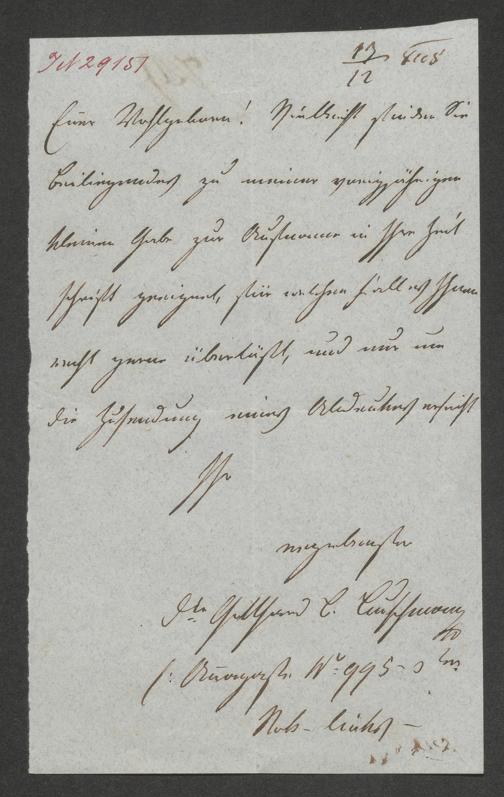 JN 29151
17/12
Euer Wohlgeboren! Vielleicht finden Sie
Beiliegendes zu meiner vorigjährigen
kleinen Gabe zur Aufnahme in Ihre Zeit
schrift geeignet, für welchen Fall es Ihnen
recht gerne überläßt, und nur um
die Zusendung eines Abdruckes ersucht
Ihr
ergebenster
Nº 995